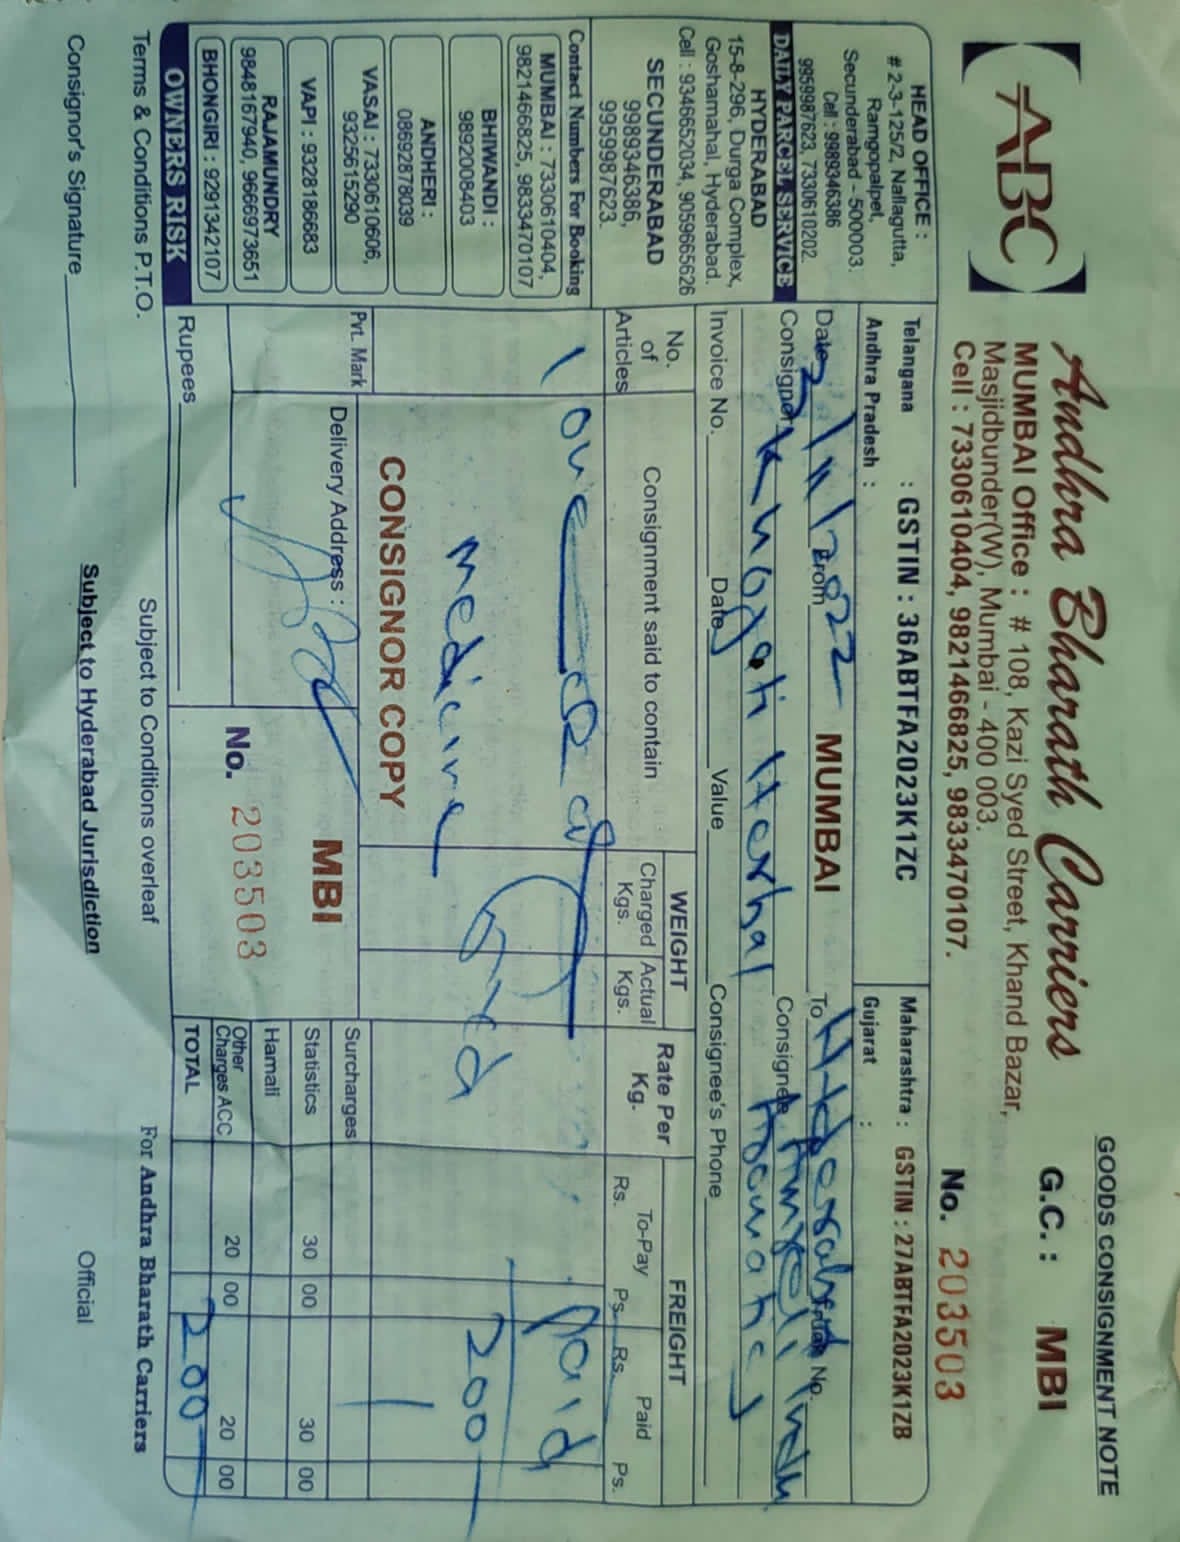 GOODS CONSIGNMENT NOTE
ABC
Andhra Bharath Carriers
G.C. : MBI
MUMBAI Office : # 108, Kazi Syed Street, Khand Bazar,
Masjidbunder(W), Mumbai - 400 003.
Cell : 7330610404, 9821466825, 9833470107.
No. 203503
HEAD OFFICE :
# 2-3-125/2, Nallagutta,
Ramgopalpet,
Secunderabad - 500003.
Cell : 9989346386
9959987623, 7330610202
DAILY PARCEL SERVICE
HYDERABAD
15-8-296, Durga Complex,
Goshamahal, Hyderabad.
Cell : 9346652034, 9059665626
SECUNDERABAD
9989346386,
9959987623.
Contact Numbers For Booking
MUMBAI : 7330610404,
9821466825, 9833470107
BHIWANDI :
9892008403
ANDHERI :
08692878039
VASAI : 7330610606,
9325615290
VAPI : 9328186683
RAJAMUNDRY
9848167940, 9666973651
BHONGIRI : 9291342107
OWNERS RISK
Telangana : GSTIN : 36ABTFA2023K1ZC
Maharashtra : GSTIN : 27ABTFA2023K1ZB
Andhra Pradesh :
Gujarat :
Date 3/11/2022 From MUMBAI To Hyderabad No.
Consignor Herbal Consignee
Invoice No. Date Value Consignee's Phone
No. of Articles
Consignment said to contain
WEIGHT
Charged Kgs.
Actual Kgs.
Rate Per Kg.
FREIGHT
To-Pay
Rs. Ps.
Paid
Rs. Ps.
1 one
Paid
medicine
200
CONSIGNOR COPY
Pvt. Mark
Delivery Address :
MBI
No. 203503
Surcharges
Statistics 30 00 30 00
Hamali
Other Charges ACC 20 00 20 00
TOTAL 200
Rupees
Terms & Conditions P.T.O.
Subject to Conditions overleaf
For Andhra Bharath Carriers
Consignor's Signature
Subject to Hyderabad Jurisdiction
Official